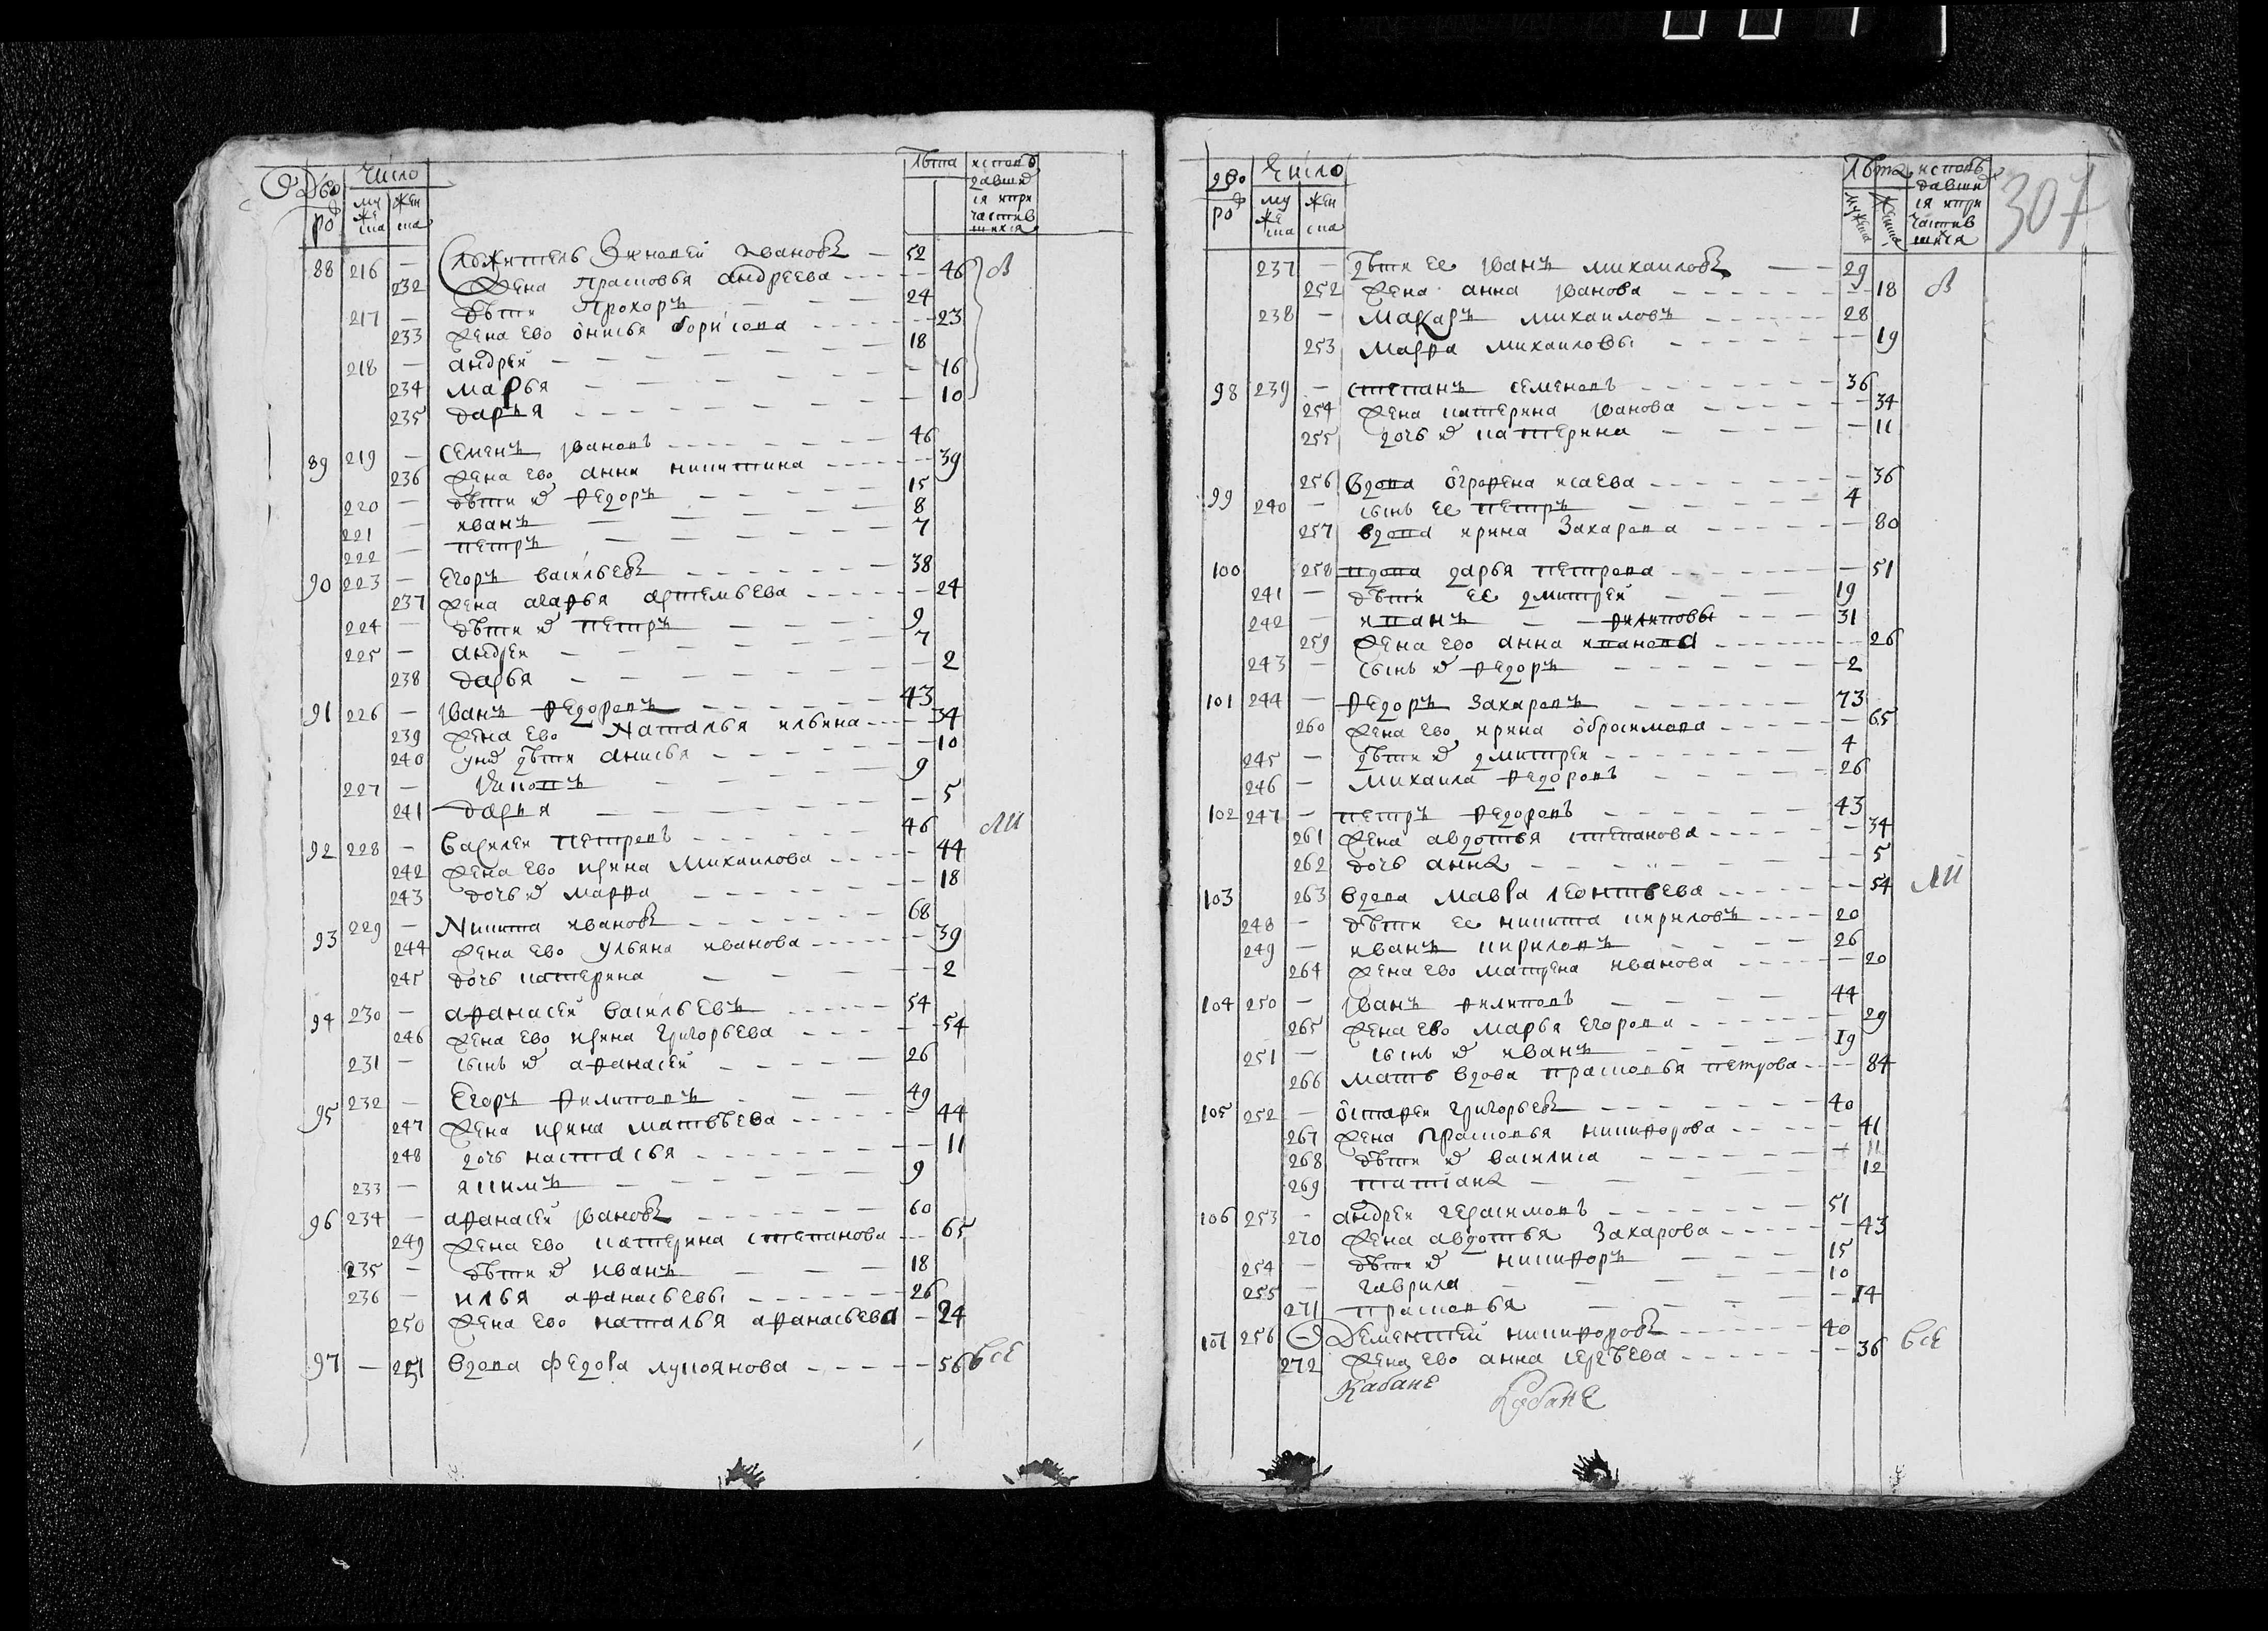 Дво ро Число му же ска жен ска Лѣта исповѣ давши ся и при частив шихся
88 216 — Сл жителъ Зиновей Ивановъ — 52
232 Жена Прасковья андреева — 46 в
217 — дѣти Прохоръ — 24
233 жена ево онисья борисова — 23
218 — андрей — 18
234 марья — 16
235 дарья — 10
89 219 — семенъ Iвановъ — 46
236 жена ево анна никитина — 39
220 — дѣти их федоръ — 15
221 — иванъ — 8
222 — петръ — 7
90 223 — Егоръ васильевъ — 38
237 жена агафья артемьева — 24
224 — дѣти их петръ — 9
225 — андреи — 7
238 дарья — 2
91 226 — Iванъ федоровъ — 43
239 жена ево Наталья ильина — 34
240 у них дѣти анисья — 10
227 — — 9
241 дарья — 5
92 228 — василеи петровъ — 46 ли
242 жена ево ирина михаилова — 44
243 дочь их марфа — 18
93 229 — Никита ивановъ — 68
244 жена ево ульяна иванова — 39
245 дочь катерина — 2
94 230 — афанасеи васильевъ — 54
246 жена ево ирина григорьева — 54
231 — сынъ их афанасеи — 26
95 232 — Егоръ филиповъ — 49
247 жена ирина матвѣева — 44
248 дочь настасья — 11
233 — якимъ — 9
96 234 — афанасеи Iвановъ — 60
249 жена ево катерина степанова — 65
235 — дѣти их иванъ — 18
236 — илья афанасьевы — 26
250 жена ево наталья афанасьева — 24
97 — 251 вдова федора лукоянова — 56 все
дво ро Число му же ска жен ска Лѣта мужеска женска исповѣ давши ся и при частив шихся 307
237 — дѣти ее Iванъ михаиловъ — 29
252 жена анна Iванова — 18 в
238 — макаръ михаиловъ — 28
253 марфа михаиловы — 19
98 239 — степанъ семеновъ — 36
254 жена катерина Iванова — 34
255 дочь их катерина — 11
256 вдова огрофена исаева — 36
99 240 — сынъ ее петръ — 4
257 вдова ирина Захарова — 80
100 258 вдова дарья петрова — 51
241 — дѣти ее дмитреи — 19
242 — иванъ — филиповы — 31
259 жена ево анна иванова — 26
243 — сынъ их федоръ — 2
101 244 — федоръ Захаровъ — 73
260 жена ево ирина обросимова — 65
245 — дѣти их дмитреи — 4
246 — михаила федоровъ — 26
102 247 — петръ федоровъ — 43
261 жена авдотья степанова — 34
262 дочь анна — 5
103 263 вдова мавра леонтьева — 54 ли
248 — дѣти ее никита кириловъ — 20
249 — иванъ кириловъ — 26
264 жена ево матрена иванова — 20
104 250 — Iванъ филиповъ — 44
265 жена ево марья егорова — 29
251 — сынъ их иванъ — 19
266 мать вдова прасковья петрова — 84
105 252 — остафеи григорьевъ — 40
267 жена прасковья никифорова — 41
268 дѣти их василиса — 11
269 татiана — 12
106 253 — андреи герасимовъ — 51
270 жена авдотья Захарова — 43
254 — дѣти их никифоръ — 15
255 — гаврила — 10
271 прасковья — 14
107 256 Дементей никифоровъ — 40
272 жена ево анна сергѣева — 36 все
Кабане Кабане